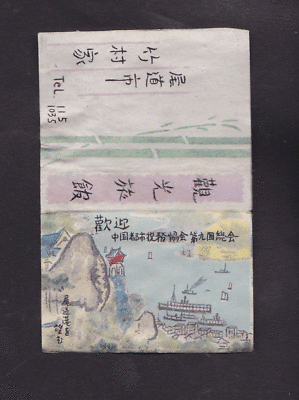 尾道市
竹村家
TEL. 115
1035
觀光旅館
歡迎
中国都市税務協会第九回總会